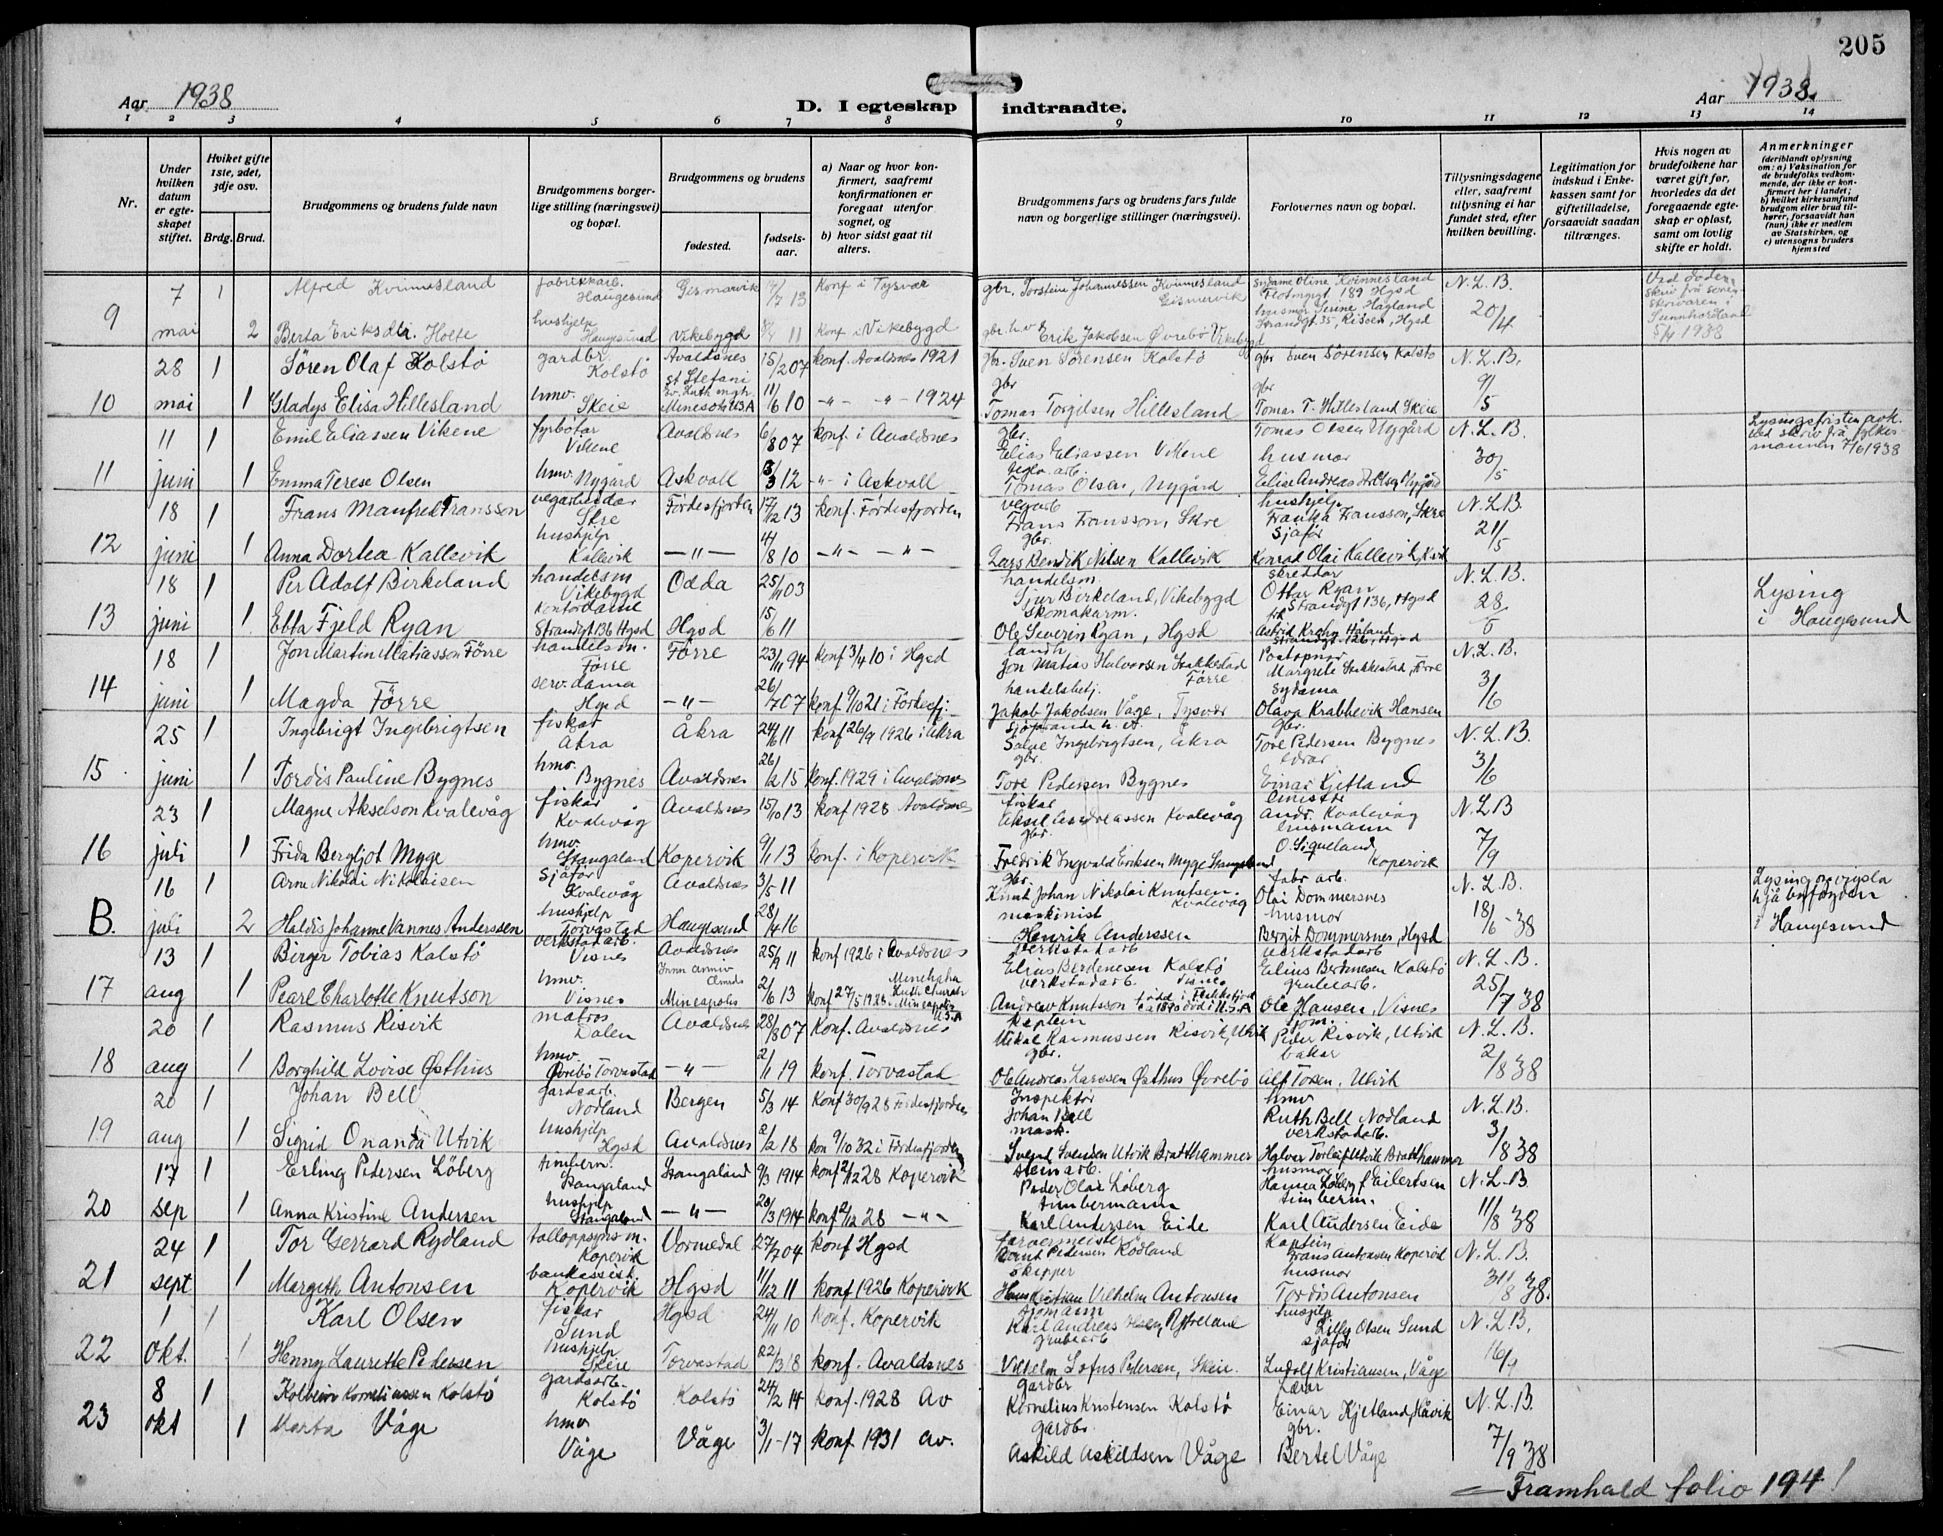 205
Aar 1938
D. I egteskap indtraadte.
Aar 1938.
1 2 3 4 5 6 7 8 9 10 11 12 13 14
Nr.
Under hvilken datum er egteskapet stiftet.
Hviket gifte 1ste, 2det, 3dje osv.
Brdg. Brud.
Brudgommens og brudens fulde navn
Brudgommens borgerlige stilling (næringsvei) og bopæl.
Brudgommens og brudens
fødested.
fødselsaar.
a) Naar og hvor konfirmert, saafremt konfirmationen er foregaat utenfor sognet, og
b) hvor sidst gaat til alters.
Brudgommens fars og brudens fars fulde navn og borgerlige stillinger (næringsvei).
Forlovernes navn og bopæl.
Tillysningsdagene eller, saafremt tillysning ei har fundet sted, efter hvilken bevilling.
Legitimation for indskud i Enkekassen samt for giftetilladelse, forsaavidt saadan tiltrænges.
Hvis nogen av brudefolkene har været gift før, hvorledes da det foregaaende egteskap er opløst, samt om lovlig skifte er holdt.
Anmerkninger
(deriblandt oplysning om: a) Vaksination for de brudefolks vedkommende, der ikke er konfirmert her i landet; b) hvilket kirkesamfund brudgom eller brud tilhører, forsaavidt han (hun) ikke er medlem av Statskirken, og c) utensogns bruders hjemsted
9 7 mai 1 Alfred Kvinnesland fabrikkarb. Haugesund Gismarvik 13 Konf i Tysvær gbr. Torstein Johannessen Kvinnesland Gismervik N.L.B. 20/4
2 Berta Eriksdtr. Holte hushjelp Haugesund Vikebygd 11 Konf. i Vikebygd Erik Jakobsen Øvrebö Vikebygd Strandgt 35, Risøen, Hgsd
5/4 1938
10 28 mai 1 Sören Olaf Kolstö gardbr. Kolstö Avaldsnes 15/2 07 konf. Avaldsnes 1921 gbr. Sven Sörensen Kolstö gbr Sven Sörensen Kolstö N.L.B. 9/5
1 Gladys Elisa Hillesland hmv. Skeie Minesota USA 11/6 10 -"- -"- 1924 gbr Tomas Torgilsen Hillesland gbr Tomas T. Hillesland Skeie
11 11 juni 1 Emil Eliassen Vikene fyrbötar Vikene Avaldsnes 6/8 07 konf. i Avaldsnes gbr. Elias Eliassen Vikene Tomas Olsen Nygård N.L.B. 30/5
1 Emma Terese Olsen hmv. Nygård Askvoll 12 -"- i Askvoll Tomas Olsen, Nygård husmor
12 18 juni 1 Frans Manfred Fransson vegarbeidar Skre Fördesfjorden 17/12 13 konf. Fördesfjorden vegarb Frans Fransson, Skre hushjelp Franka Fransson, Skre N.L.B. 21/5
1 Anna Dortea Kallevik hushjelp Kallevik -"- 4/8 10 -"- -"- gbr. Lars Bendik Nilsen Kallevik Sjåför Konrad Olai Kallevik
13 18 juni 1 Per Adolf Birkeland handelsm Vikebygd Odda 25/11 03 handelsm. Sjur Birkeland, Vikebygd skreddar Ottar Ryan Strandgt 136, Hgsd N.L.B. 28/5 Lysing i Haugesund
1 Etta Fjeld Ryan Kontordame Strandgt 136 Hgsd Hgsd 15/6 11 skomakarm. Ole Severin Ryan, Hgsd Astrid Krohg Håland Strandgt. 126, Hgsd
14 18 juni 1 Jon Martin Matiasson Förre handelsm. Förre Förre 23/11 94 konf 3/4 10 i Hgsd landh Jon Matias Halvorsen Stakkestad Förre Postopnar Margrete Stakkestad, Förre N.L.B. 3/6
1 Magda Förre serv.dama Hgsd -"- 26/7 07 konf. 9/10 21 i Fördesfj. handelsbetj. Jakob Jakobsen Våge, Tysvær Sydama Olava Krabbevik Hansen
15 25 juni 1 Ingebrigt Ingebrigtsen fiskar Åkra Åkra 24/6 11 konf 26/9 1926 i Åkra Salve Ingebrigtsen, Åkra gbr. Tore Pedersen Bygnes N.L.B. 3/6
1 Tordis Pauline Bygnes hmv. Bygnes Avaldsnes 26/2 15 konf. 1929 i Avaldsnes gbr. Tore Pedersen Bygnes Einar Kjetland
16 23 juli 1 Magne Akselson Kvalevåg fiskar Kvalevåg Avaldsnes 15/10 13 konf 1928 Avaldsnes fiskar Aksel Andreassen Kvalevåg Andr. Kvalevåg N.L.B 7/9
1 Frida Bergljot Myge hmv. Stangaland Kopervik 9/1 13 konf. i Kopervik gbr. Fredrik Ingvald Eriksen Myge Stangeland O. Siqueland Kopervik
B. 16 juli 1 Arne Nikolai Nikolaisen Sjåför Kvalevåg Avaldsnes 3/5 11 gbr. Knut Johan Nikolai Knutsen. Kvalevåg fabr arb. Olai Dommersnes N.L.B. 18/6 -38
2 Haldis Johanne Vannes Anderssen hushjelp Torvastad Haugesund 28/4 16 maskinist Henrik Anderssen husmor Bergit Dommersnes, Hgsd i Haugesund
17 13 aug 1 Birger Tobias Kolstö verkstadarb. Visnes Avaldsnes 25/9 11 konf 1926 i Avaldsnes verkstadarb Elius Berdinesen Kolstö verkstadarb Elius Berdinesen Kolstö N.L.B. 25/7 38
1 Pearl Charlotte Knutson hmv. Visnes Mineapolis 2/6 13 konf 27/5 1928 Mineapolis USA Andrew Knutsson död i U.S.A gruvearb. Ole Hansen, Visnes
18 20 aug 1 Rasmus Risvik matros Dalen Avaldsnes 28/8 07 Konf. Avaldsnes Kaptein Mikal Rasmussen Risvik, Utvik Peder Risvik, Utvik N.L.B. 2/8 38
1 Borghild Lovise Østhus hmv. Øvrebö Torvastad -"- 2/1 19 konf. Torvastad gbr. Ole Andreas Larssen Østhus Øvrebö bakar Alf Torsen, Utvik
19 20 aug 1 Johan Bell gardsarb. Nodland Bergen 5/3 14 Konf 30/9 28 Fördesfjorden Inspektör Johan Bell hmv Ruth Bell Nodland N.L.B. 3/8 38
1 Sigrid Onanda Utvik hushjelp Hgsd Avaldsnes 2/2 18 kon 9/10 32 i Fördesfjorden mask. Svend Svendsen Utvik Bratthammer verkstadarb. Halvor Torleif Utvik Bratthammer
20 17 sep 1 Erling Pedersen Löberg timberm. Stangaland Stangaland 9/3 1914 konf 2/12 28 Kopervik steinarb. Peder Olai Löberg husmor Hanna Löberg f. Eilertsen N.L.B 11/8 38
1 Anna Kristine Andersen hushjelp Stangaland -"- 20/3 1914 konf 2/12 28 -"- timbermann Karl Andersen Eide timberm. Karl Andersen Eide
21 24 sept 1 Tor Gerrard Rydland talloppsyns m. Kopervik Vormedal 27/7 04 konf Hgsd farvermeister Pedersen Rödland Kaptein Frans Antonsen Kopervik N.L.B. 31/8 38.
1 Margith Antonsen bankassist. Kopervik Hgsd 11/12 11 konf 1926 Kopervik Skipper Hans Kristian Vilhelm Antonsen husmor Tordis Antonsen
22 1 okt. 1 Karl Olsen fiskar Sund Hgsd 24/11 10 Konf. Kopervik sjömann Karl Andreas Olsen, hushjelp Lilly Olsen Sund N.L.B. 16/9
1 Henny Laurette Pedersen hushjelp Skeie Torvastad 22/3 18 konf. Avaldsnes gruvearb Vilhelm Sofus Pedersen, Skeie. sjåför Ludolf Kristiansen, Våge
23 8 okt 1 Kolbein Korneliussen Kolstö gardsarb. Kolstö Kolstö 24/2 14 konf. 1928 Av gardbr Kornelius Kristensen Kolstö Lærar Einar Kjetland, Håvik N.L.B. 7/9 38
1 Marta Våge hmv Våge Våge 3/1 -17 konf 1931 Av. gardbr. Askild Askildsen Våge gbr. Bertel Våge
Framhald folio 194!